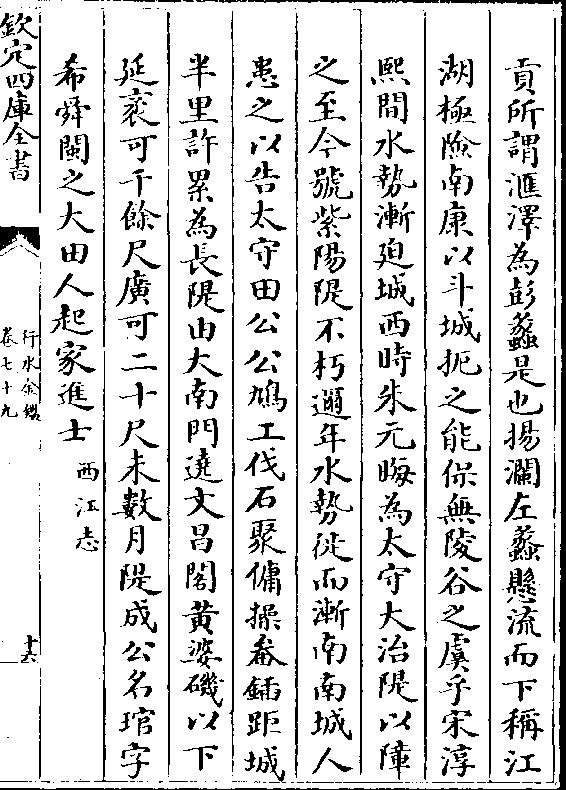 貢所謂滙澤為彭蠡是也揚瀾左蠡懸流而下稱江
湖極險南康以斗城扼之能保無陵谷之虞乎宋淳
熙間水勢漸廹城西時朱元晦為太守大治隄以障
之至今號紫陽隄不朽邇年水勢徙而漸南南城人
患之以告太守田公公鳩工伐石聚傭操畚鍤距城
半里許累為長隄由大南門遶文昌閣黃婆磯以下
延袤可千餘尺廣可二十尺未數月隄成公名琯字
希舜閩之大田人起家進士 西江志
欽定四庫全書
行水金鑑
卷七十九
十六